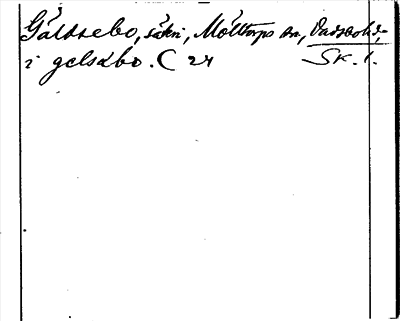 Gälsebo, säteri, Mölltorps sn, Vadsbo hd,
i gelsabo. C 24 Sk. l.